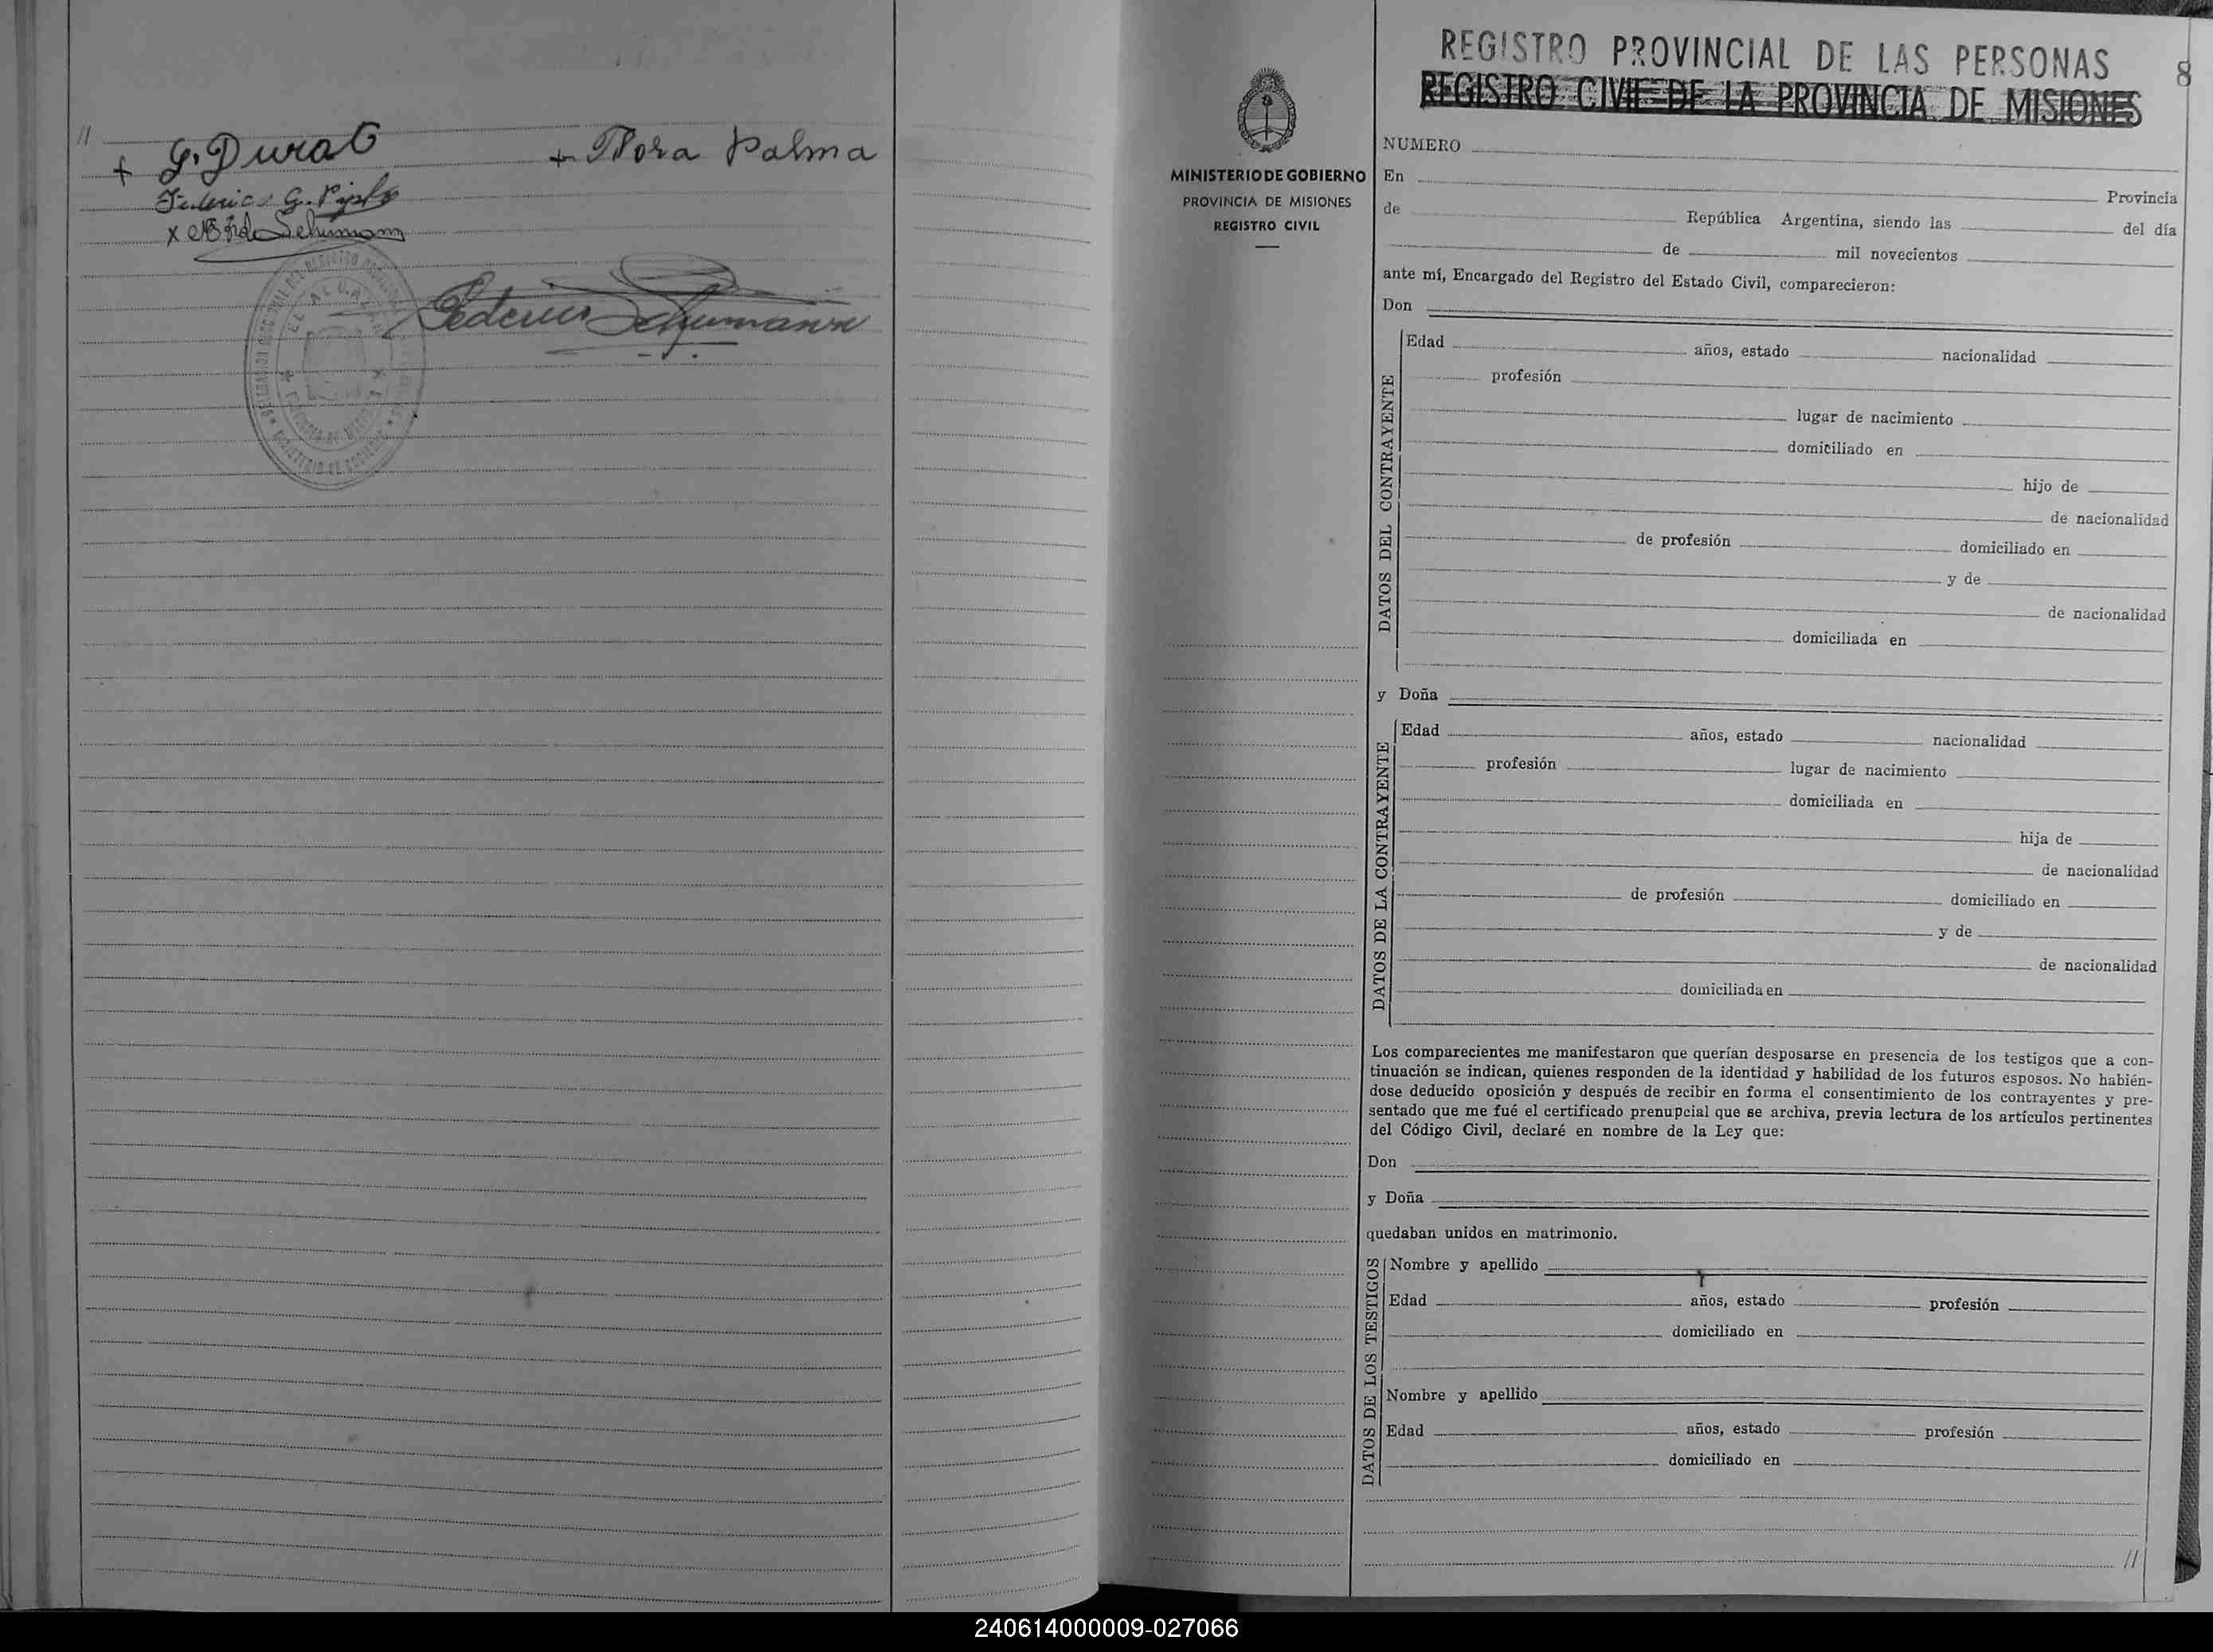 //
+ G. Durat + Nora Palma
Federico G.
x Schumann
Federico Schumann
REGISTRO PROVINCIAL DE LAS PERSONAS
8
REGISTRO CIVIL DE LA PROVINCIA DE MISIONES
MINISTERIO DE GOBIERNO
PROVINCIA DE MISIONES
REGISTRO CIVIL
NUMERO
En Provincia
de República Argentina, siendo las del día
de mil novecientos
ante mí, Encargado del Registro del Estado Civil, comparecieron:
Don
DATOS DEL CONTRAYENTE
Edad años, estado nacionalidad
profesión
lugar de nacimiento
domiciliado en
hijo de
de nacionalidad
de profesión domiciliado en
y de
de nacionalidad
domiciliada en
y Doña
DATOS DE LA CONTRAYENTE
Edad años, estado nacionalidad
profesión lugar de nacimiento
domiciliada en
hija de
de nacionalidad
de profesión domiciliado en
y de
de nacionalidad
domiciliada en
Los comparecientes me manifestaron que querían desposarse en presencia de los testigos que a con-
tinuación se indican, quienes responden de la identidad y habilidad de los futuros esposos. No habién-
dose deducido oposición y después de recibir en forma el consentimiento de los contrayentes y pre-
sentado que me fué el certificado prenupcial que se archiva, previa lectura de los artículos pertinentes
del Código Civil, declaré en nombre de la Ley que:
Don
y Doña
quedaban unidos en matrimonio.
DATOS DE LOS TESTIGOS
Nombre y apellido
Edad años, estado profesión
domiciliado en
Nombre y apellido
Edad años, estado profesión
domiciliado en
//
240614000009-027066